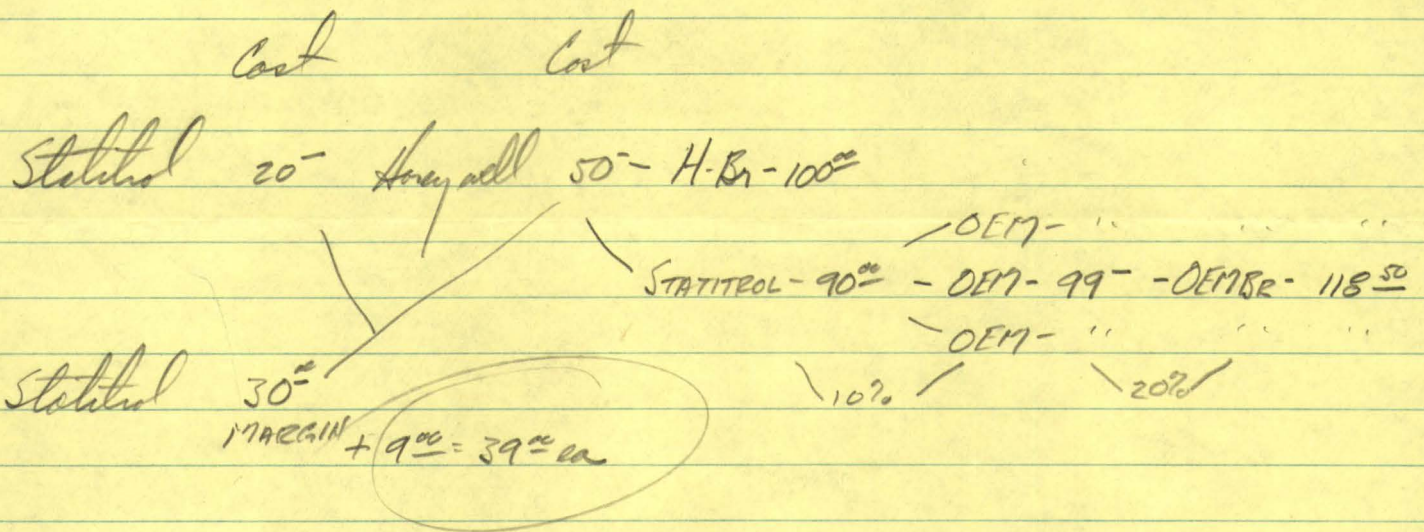 Cost Cost
Statitrol 20- Honeywell 50- H-Br-100⁰⁰
OEM- " " "
STATITROL - 90⁰⁰ - OEM- 99- - OEMBR- 118 50
OEM- " " "
10% 20%
Statitrol 30⁰⁰
MARGIN + 9⁰⁰ = 39⁰⁰ ea